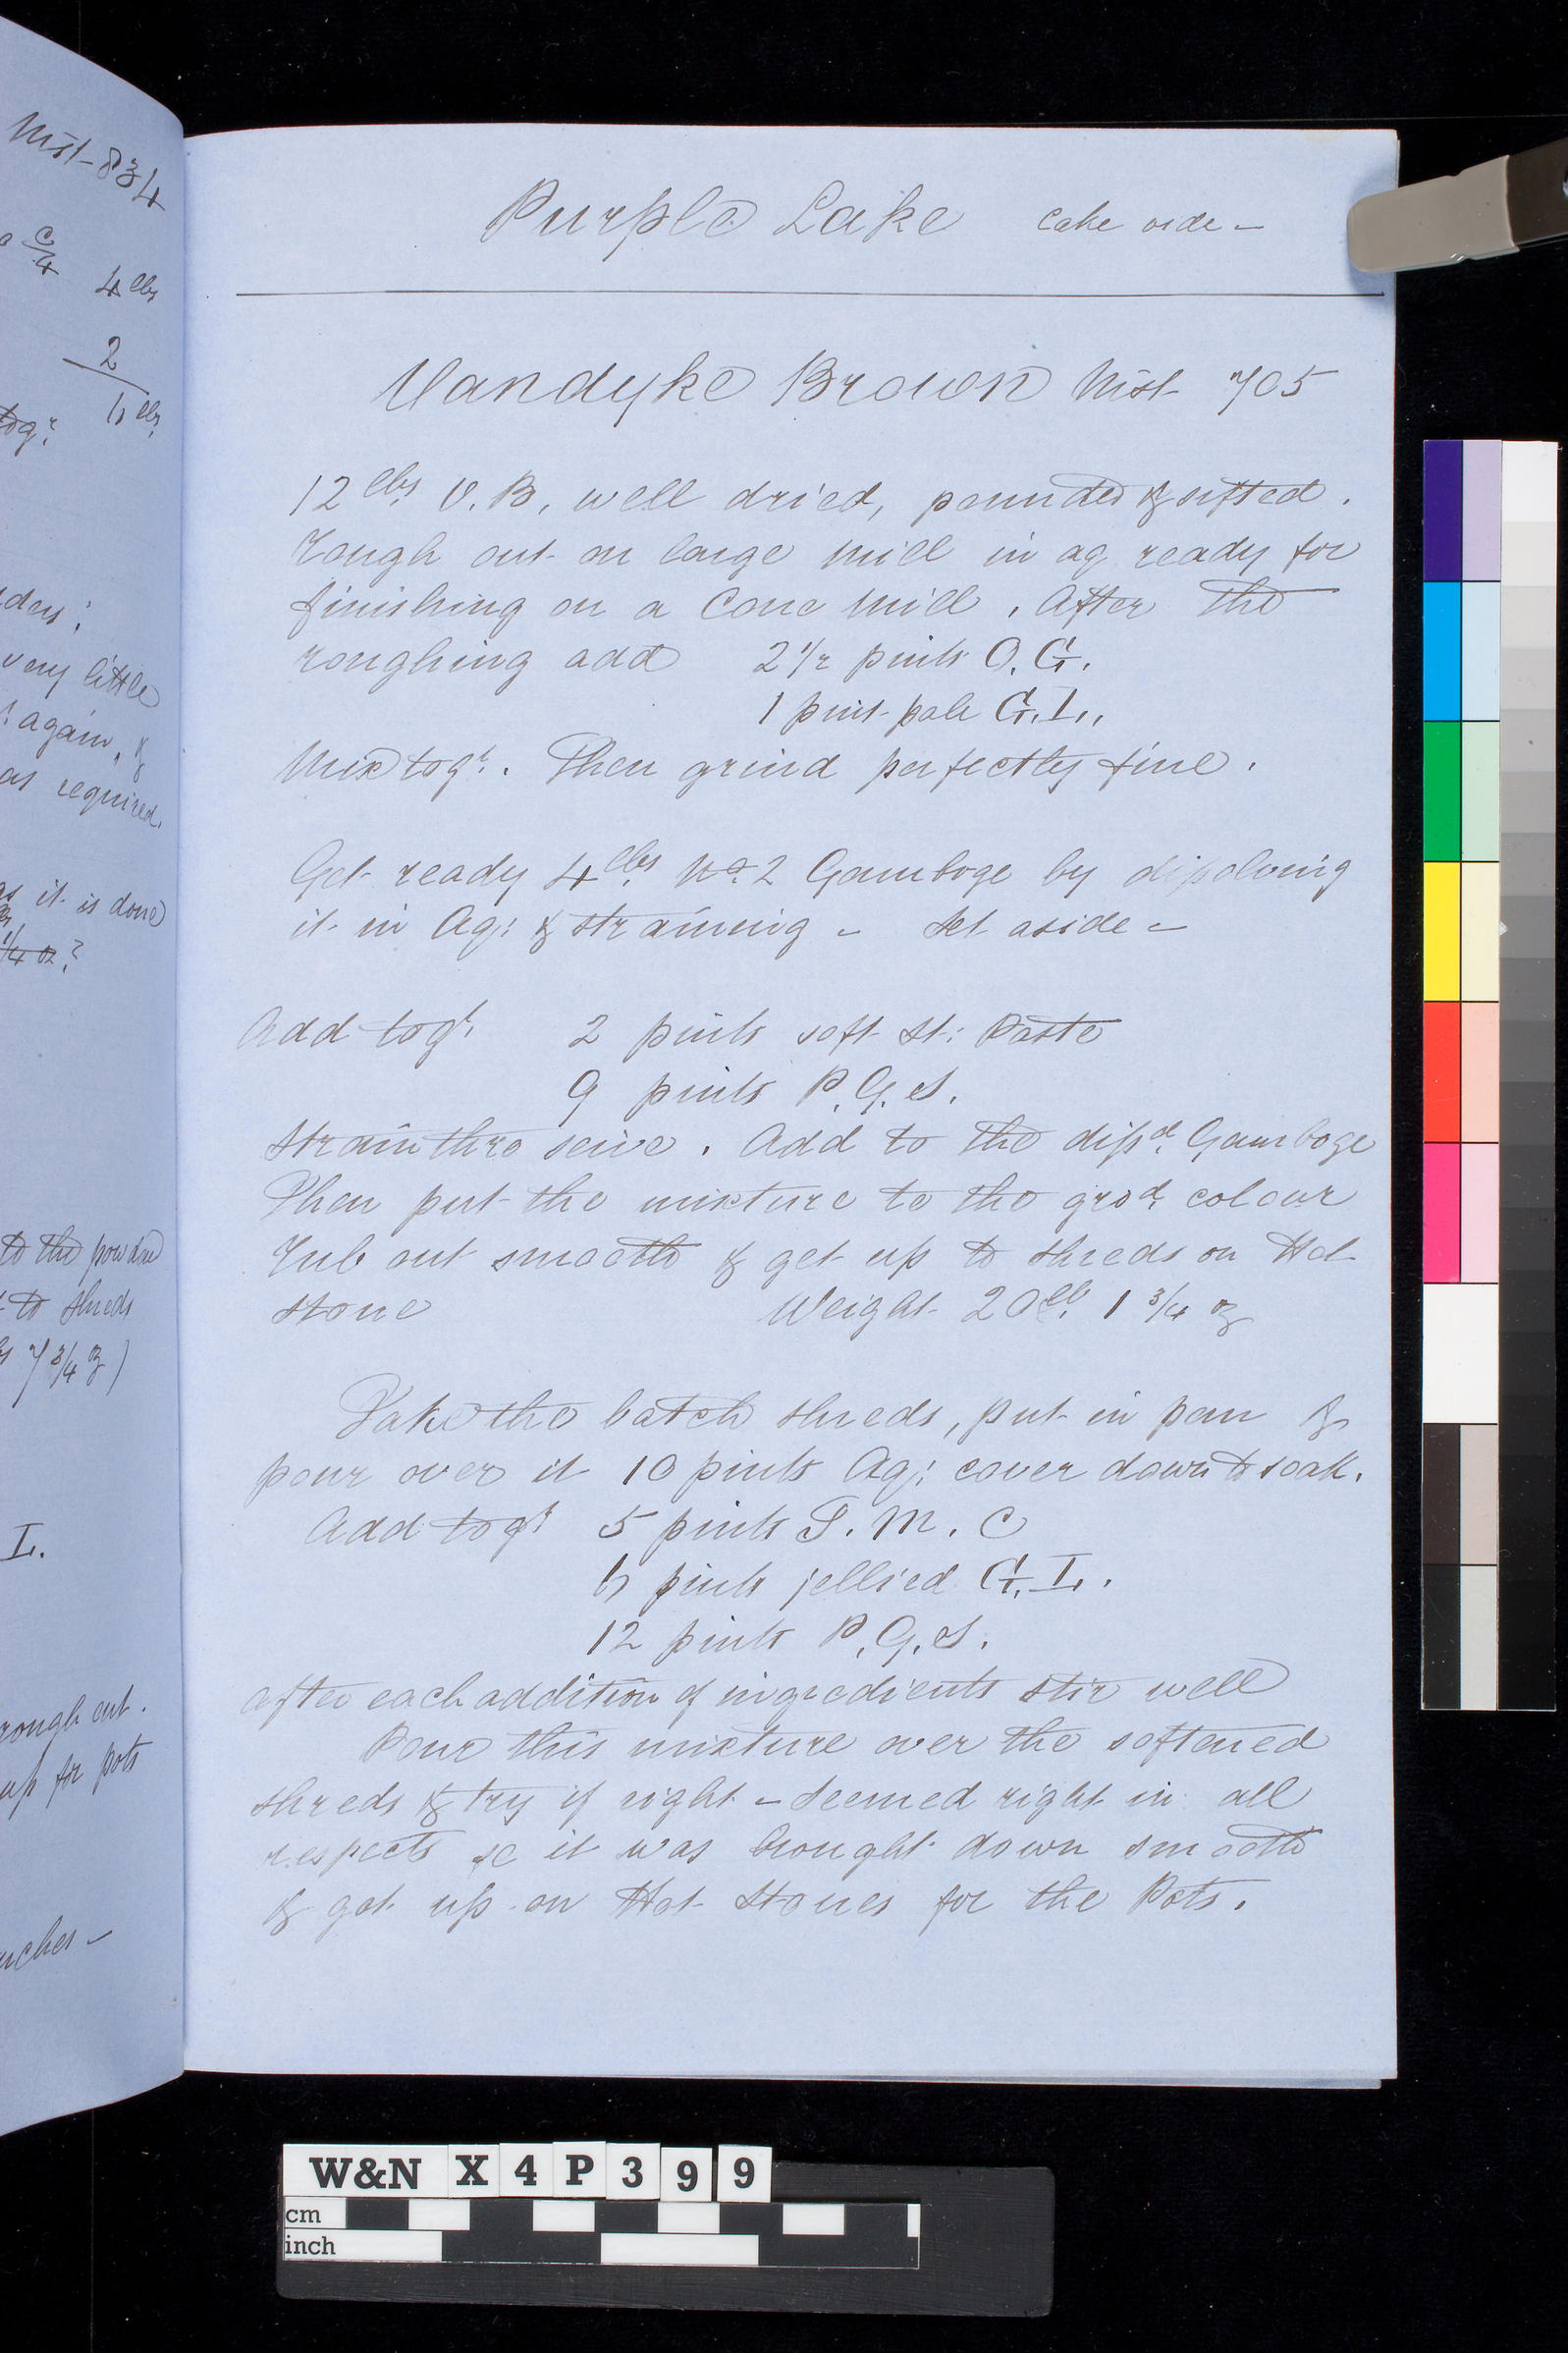 Mist 834
c/4 4 lbs
2
6 lbs
togr.
ders;
very little
again, &
as required.
as it is done
1/4 oz?
to the powder
to shreds
7 3/4 oz)
L.
rough out.
up for pots
nches –
Purple Lake Cake side –
Vandyke Brown Mist 705
12 lbs V.B, well dried, pounded & sifted.
Rough out on large Mill in aq ready for
finishing on a Cone Mill. After the
roughing add 2 1/2 pints O.G.
1 pint pale G.L,
Mix togr. Then grind perfectly fine.
Get ready 4 lbs No. 2 Gamboge by dissolving
it in Aq: & straining – Set aside –
Add togr. 2 pints soft St: Paste
9 pints P.G.S.
Strain thro seive. Add to the dissd. Gamboge
Then put the mixture to the grod. colour
Rub out smooth & get up to shreds on Hot
stone Weight 20 lb. 1 3/4 oz
Take the batch shreds, put in pan &
pour over it 10 pints Aq; cover down to soak.
Add togr 5 pints T.M.C
6 pints jellied G.L.
12 pints P.G.S.
after each addition of ingredients stir well
Pour this mixture over the softened
shreds & try if right – Seemed right in all
respects so it was brought down smooth
& got up on Hot Stones for the Pots.
W&N X4P399
cm
inch